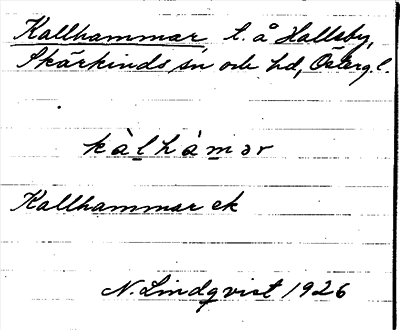 Kallhammar, t. å Hallsby,
Skärkinds sn och hd, Östergl.
kàlhámər
Kallhammar ek
N. Lindqvist 1926